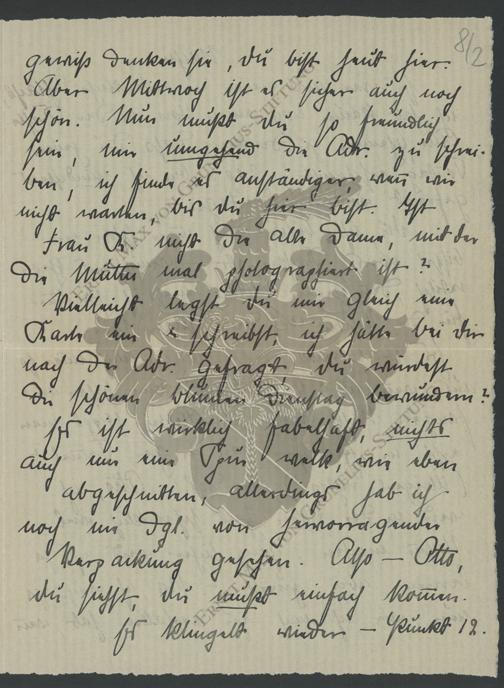 8/2
gewiß denken sie, du bist heut hier.
Aber Mittwoch ist es sicher auch noch
schön. Nun mußt du so freundlich
sein, mir umgehend die Adr. zu schrei-
ben, ich finde es anständiger, wenn wir
nicht warten, bis du hier bist. Ist
Frau K. nicht die alte Dame, mit der
die Mutter mal photographiert ist?
Vielleicht legst du mir gleich eine
Karte ein & schreibst, ich hätte bei dir
nach der Adr. gefragt du würdest
die schönen Blumen Dienstag bewundern?
Es ist wirklich fabelhaft, nichts
auch nur eine Spur welk, wie eben
abgeschnitten, allerdings hab ich
noch nie dgl. von hervorragender
Verpackung gesehen. Also — Otto,
du siehst, du mußt einfach kommen.
Es klingelt wieder — Punkt 12.